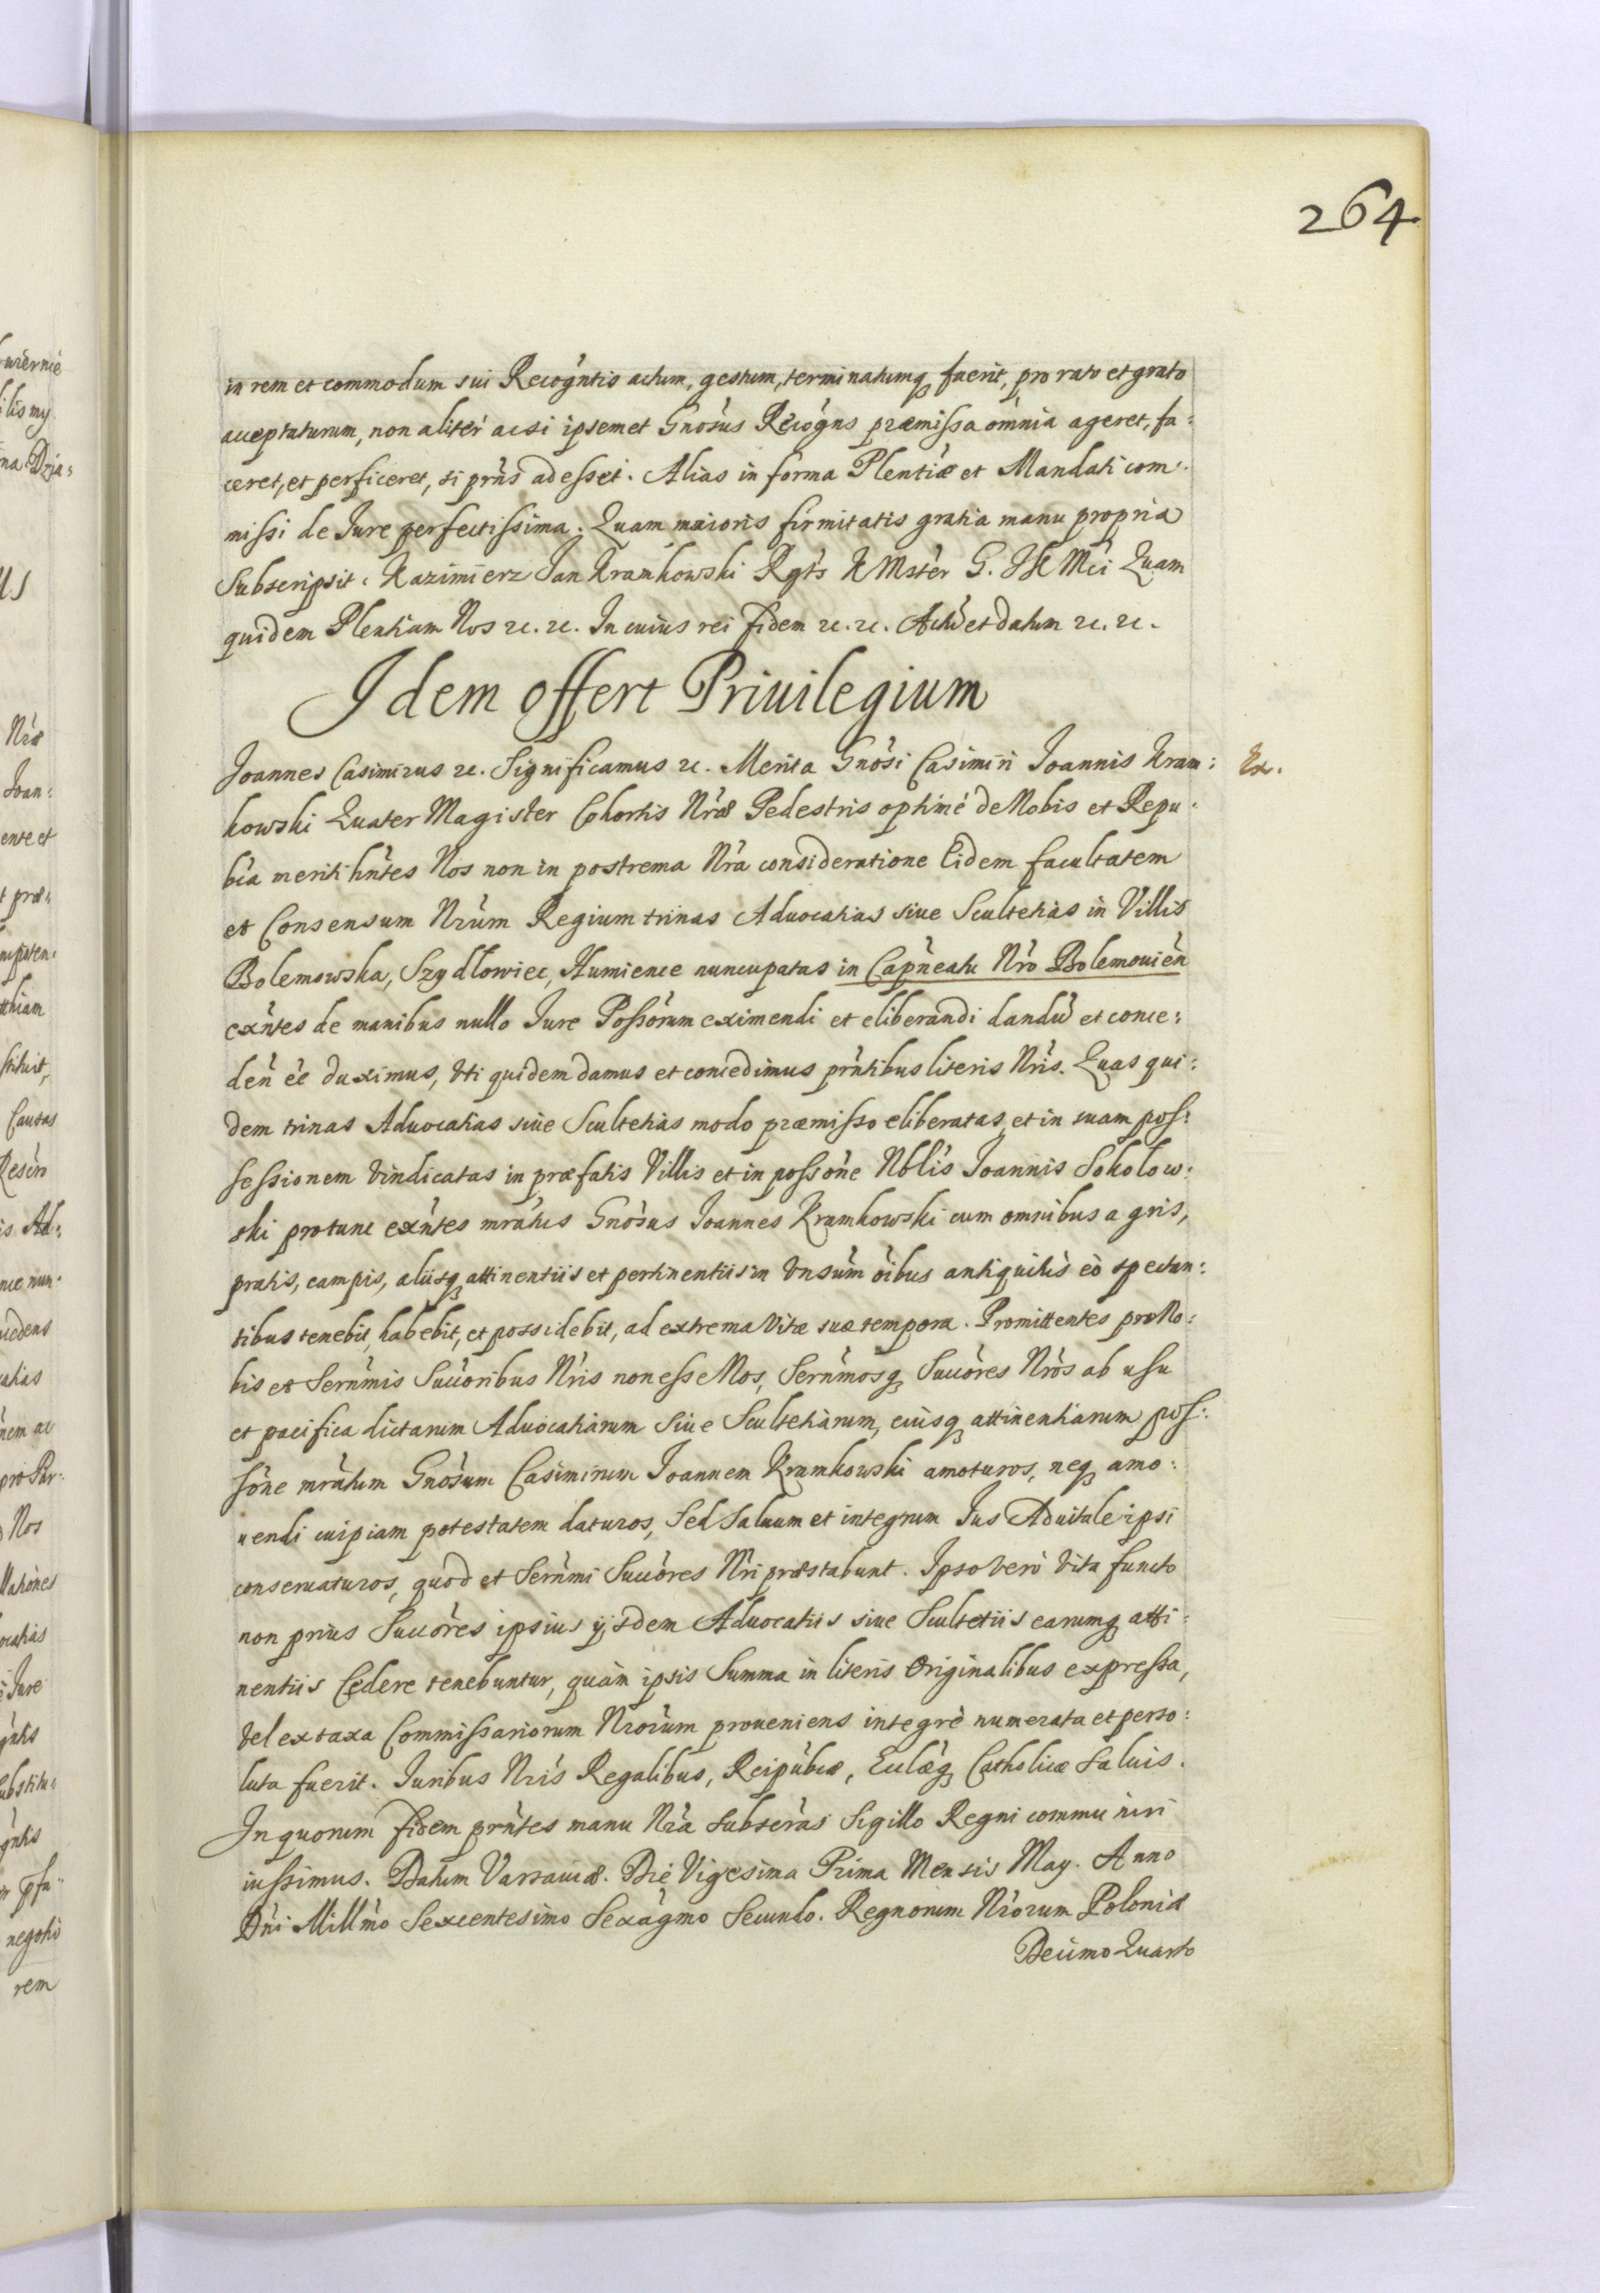 264
in rem et commodum sui Recogntis actum, gestum, terminatumq fuerit, pro rato et grato
acceptaturum, non aliter ac si ipsemet Gnosus Recogns præmissa omnia ageret, fa:
ceret, et perficeret, si prns adesset. Alias in forma Plentiæ et Mandati com:
missi de Jure perfectissima. Quam maioris firmitatis gratia manu propria
Subscripsit. Kazimierz Jan Kramkowski Quam
quidem Plentiam Nos etc. etc. In cuius rei fidem etc. etc. Actũ et datum etc. etc.
Idem offert Priuilegium
Joannes Casimirus etc. Significamus etc. Merita Gnosi Casimiri Joannis Kram: Ex.
kowski Quater Magister Cohortis Nræ Pedestris optimé de Nobis et Repu:
bca meriti hntes Nos non in postrema Nra consideratione Eidem facultatem
et Consensum Nrum Regium trinas Aduocatias siue Scultetias in Villis
Bolemowska, Szydlowiec, Humience nuncupatas in Capneatu Nro Bolemouien
exntes de manibus nullo Jure Possorum eximendi et eliberandi dandũ et conce:
den ee duximus, Vti quidem damus et concedimus prntibus literis Nris. Quas qui:
dem trinas Aduocatias siue Scultetias modo præmisso eliberatas, et in suam pos:
sessionem vindicatas in præfatis Villis et in possone Nblis Joannis Sokolow:
ski pro tunc exntes mratus Gnosus Joannes Kramkowski cum omnibus agris,
pratis, campis, aliisq attinentiis et pertinentiis in Vnsum oibus antiquitus eò spectan:
tibus tenebit, habebit, et possidebit, ad extrema Vitæ suæ tempora. Promittentes pro No:
bis et Sernmis Succoribus Nris non esse Nos, Sernmosq Succores Nros ab usu
et pacifica dictarum Aduocatiarum Siue Scultetiarum, eiusq attinentiarum pos:
sone mratum Gnosum Casimirum Joannem Kramkowski amoturos, neq amo:
uendi cuipiam potestatem daturos, Sed Saluum et integrum Jus Aduitale ipsi
conseruaturos, quod et Sernmi Succores Nri præstabunt. Ipso vero Vita functo
non prius Succores ipsius ijsdem Aduocatiis siue Scultetiis earumq atti:
nentiis Cedere tenebuntur, quàm ipsis Summa in literis Originalibus expressa,
Vel ex taxa Commissariorum Nrorum proueniens integrè numerata et perso:
luta fuerit. Juribus Nris Regalibus, Reipubcæ, Ecclæq Catholicæ Saluis.
In quorum fidem prntes manu Nra Subscras Sigillo Regni communiri
iussimus. Datum Varsauiæ. Die Vigesima Prima Mensis May. Anno
Dni Millmo Sexcentesimo Sexagmo Secundo. Regnorum Nrorum Poloniæ
Decimo Quarto